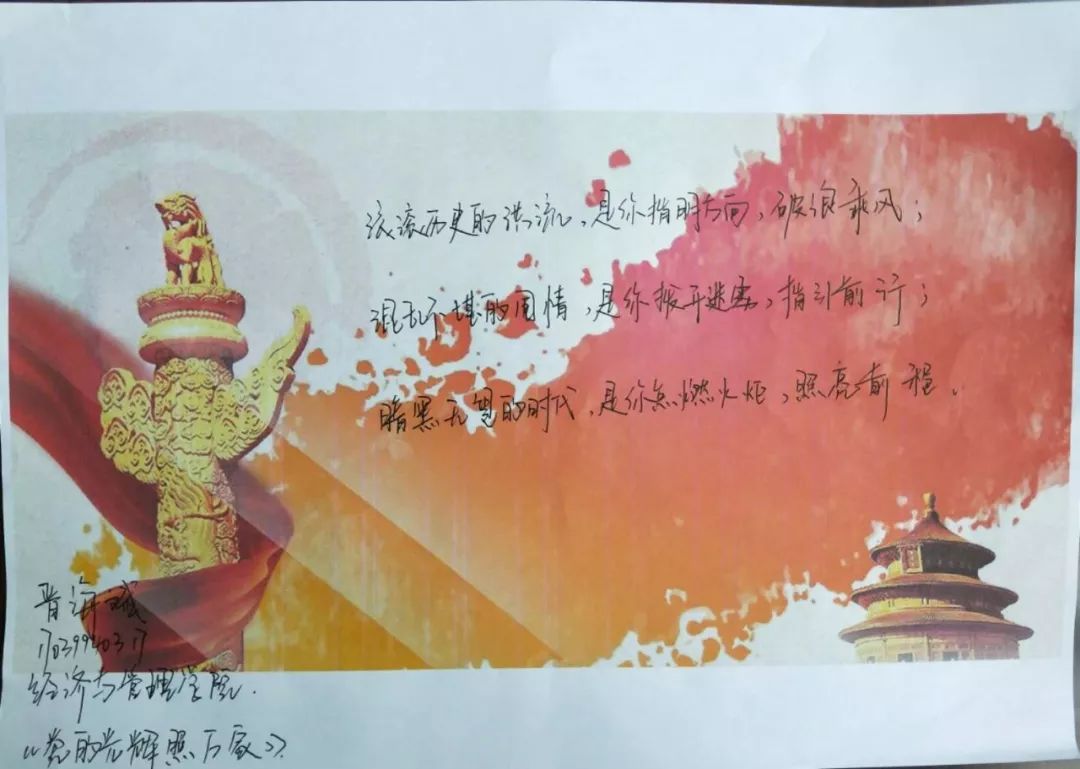 滚滚历史的洪流，是你指明方向，破浪乘风；
混乱不堪的国情，是你拨开迷雾，指引前行；
暗黑无望的时代，是你点燃火炬，照亮前程。
晋海
1703994031
经济与管理学院.
《党的光辉照万家》